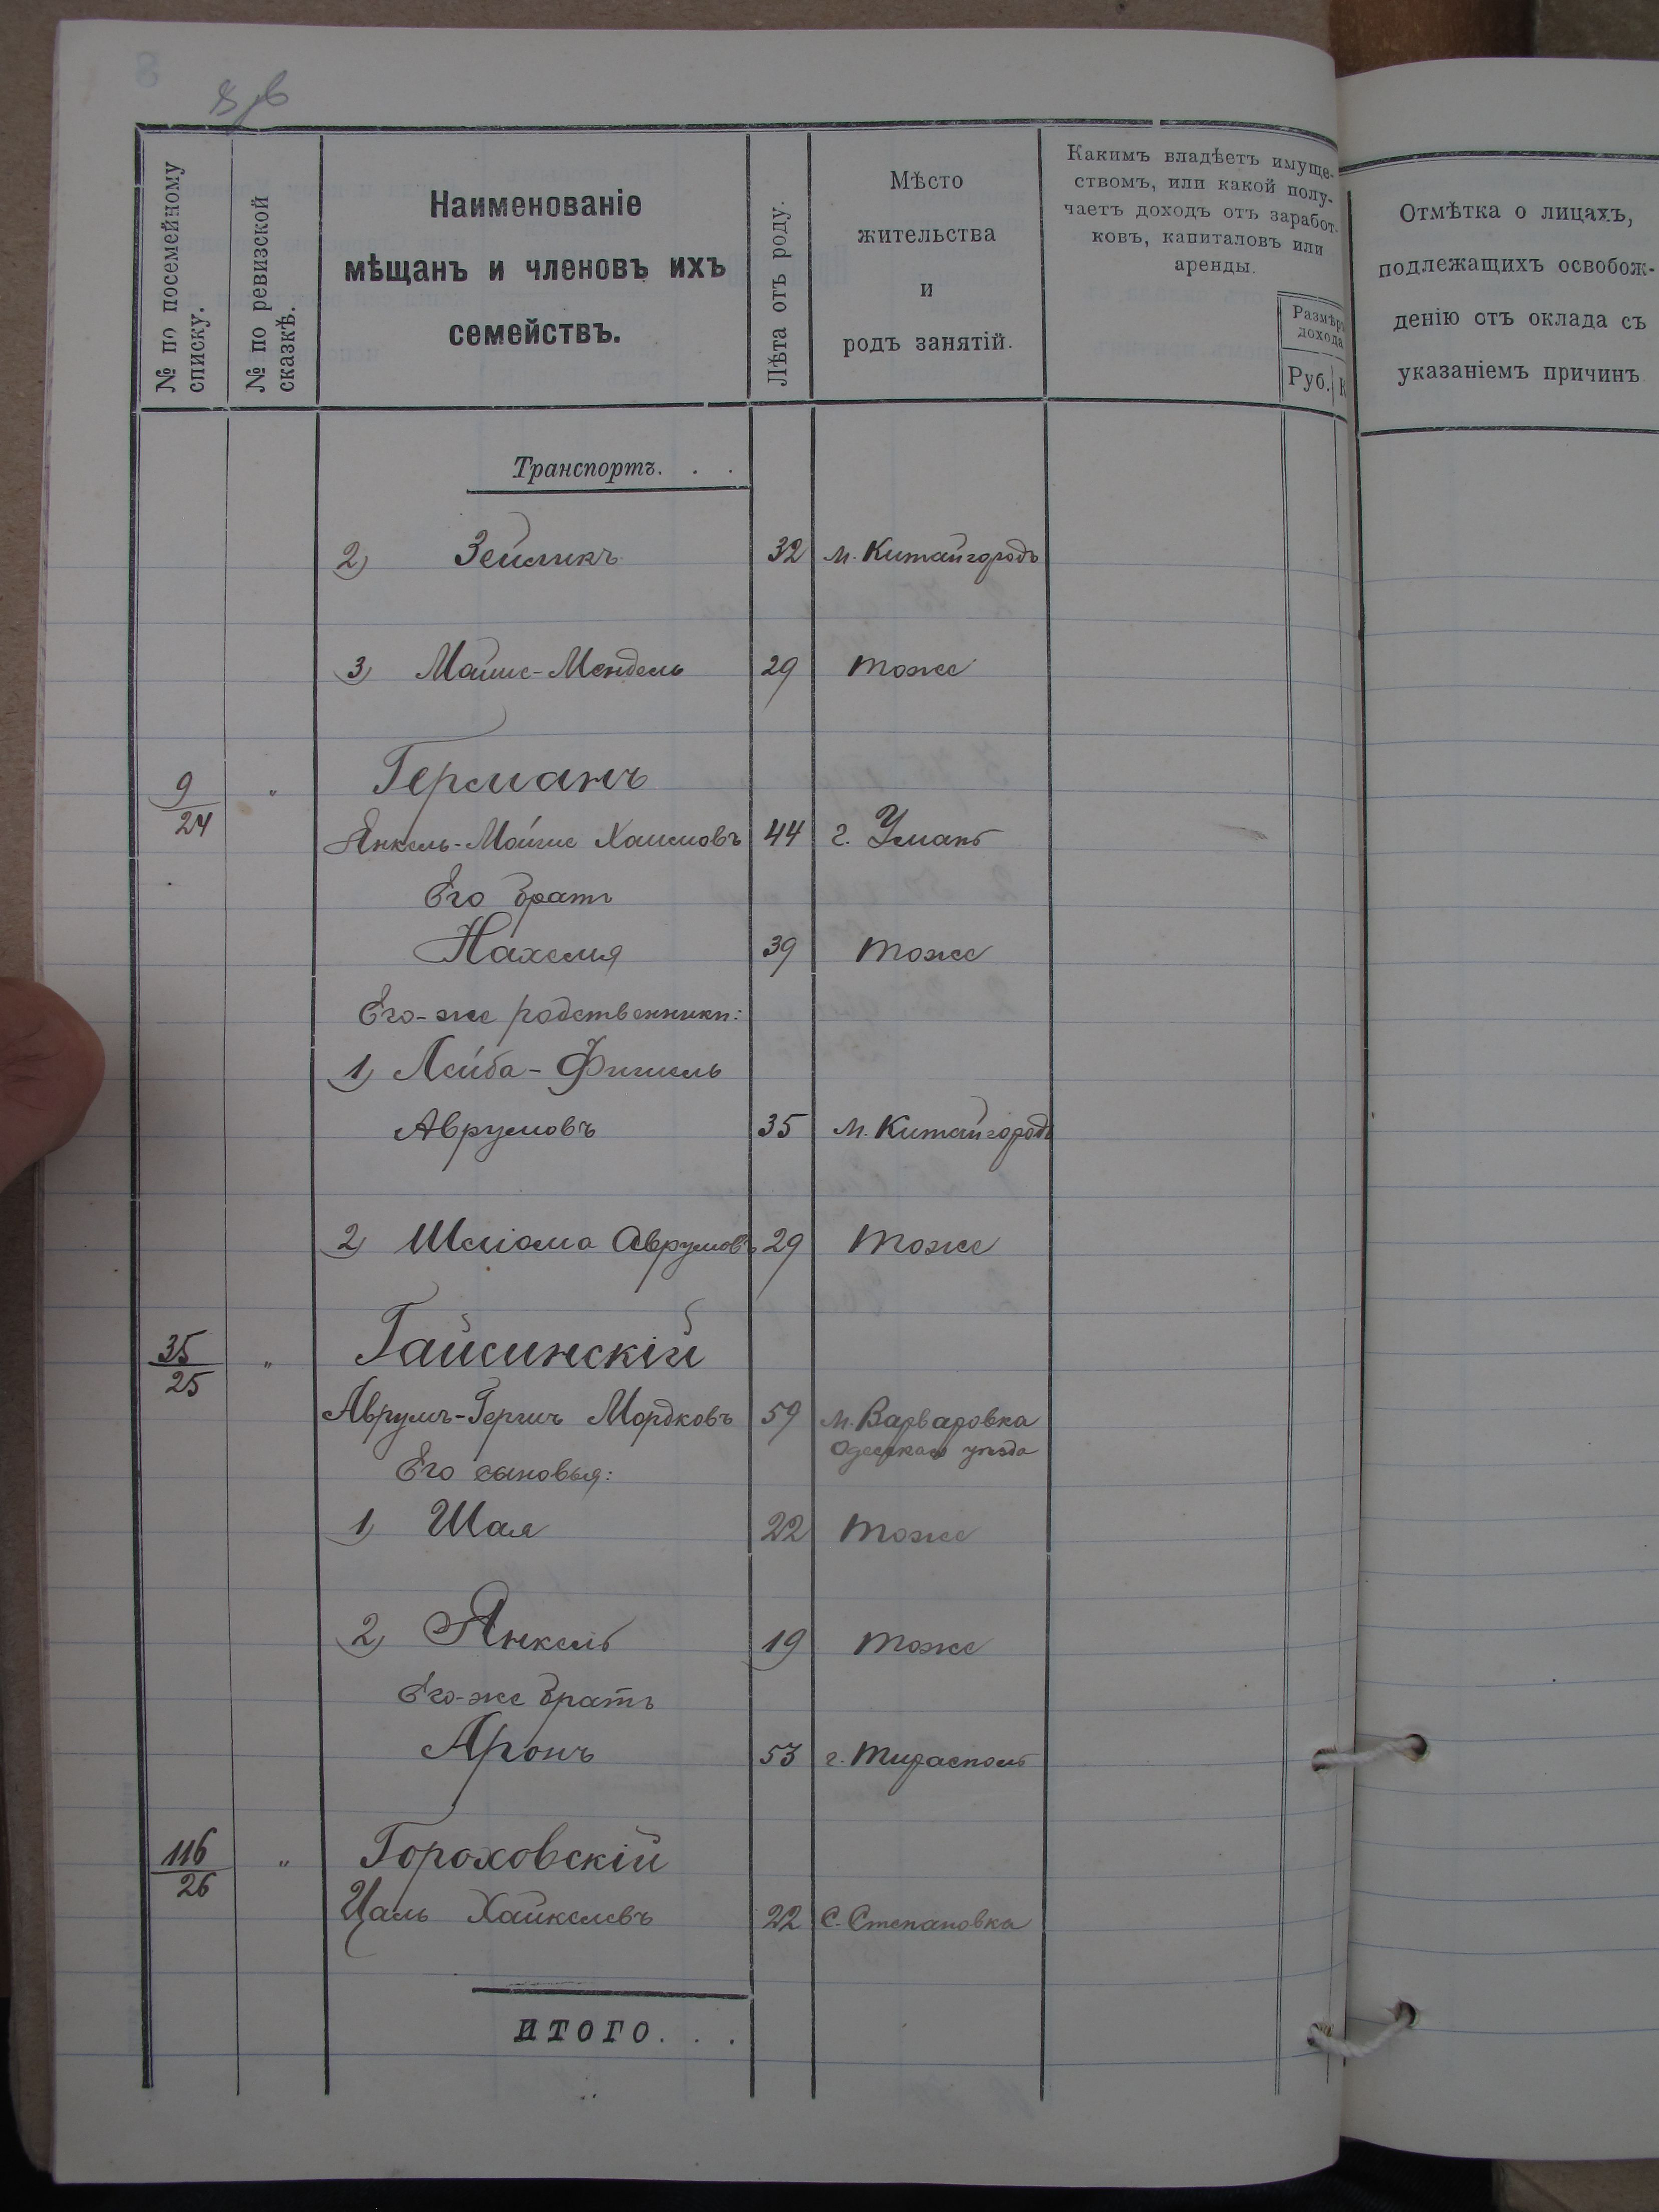 8 об
№ по посемейному
списку.
№ по ревизской
сказкѣ.
Наименованіе
мѣщанъ и членовъ ихъ
семействъ.
Лѣта отъ роду.
Мѣсто
жительства
и
родъ занятій.
Какимъ владѣетъ имуще-
ствомъ, или какой полу-
чаетъ доходъ отъ заработ-
ковъ, капиталовъ или
аренды.
Размѣръ
дохода
Руб. К
Отмѣтка о лицахъ,
подлежащихъ освобож-
денію отъ оклада съ
указаніемъ причинъ
Транспортъ. . .
2) Зейликъ 32 м. Китайгородъ
3) Мойше-Мендель 29 тоже
9/24 " Германъ
Янкель-Мойше Хаимовъ 44 г. Умань
Его братъ
Нахемия 39 тоже
Его-же родственники:
1) Лейба-Фишель
Аврумовъ 35 м. Китайгородъ
2) Шліома Аврумовъ 29 тоже
35/25 " Гайсинскій
Аврумъ-Гершъ Мордковъ 59 м. Варваровка
Одесскаго уѣзда
Его сыновья:
1) Шая 22 тоже
2) Янкель 19 тоже
Его-же братъ
Аронъ 53 г. Тирасполь
116/26 " Гороховскій
Цаль Хайкелевъ 22 с. Степановка
ИТОГО. . .